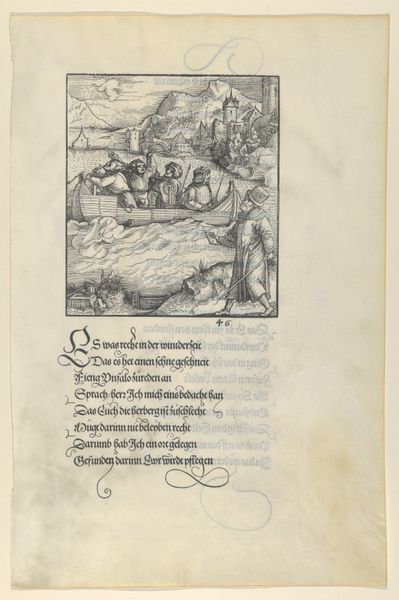 46
ES was recht in der winnderzeit
Das es het einen schne geschneit
Fieng Vnfalo zureden an
Sprach her: Ich mich eins bedacht han
Das Euch die herberg ist zuschlecht
Müge darinn nit beleyben recht
Darumb hab Ich ein ort gelegen
Gefunden darinn Ewr wirdt pflegen